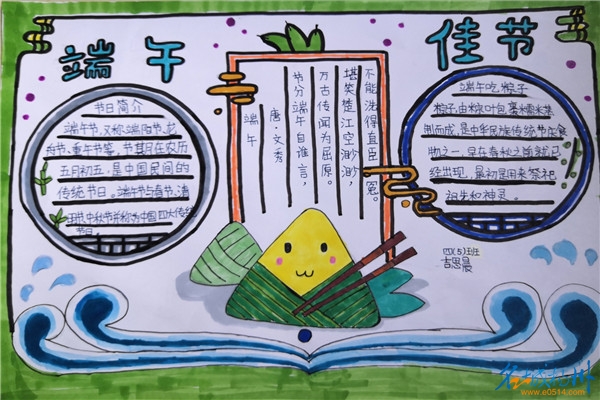 端午
佳节
节日简介
端午节,又称端阳节,
节、重午节等,节期在农历
五月初五,是中国民间的
传统节日。端午节与春节、清
明节、中秋节并称为中国四大传统
节日。
端午
唐·文秀
节分端午自谁言,
万古传闻为屈原。
堪笑楚江空渺渺,
不能洗得直臣冤。
端午吃粽子
粽子,由粽叶包裹糯米蒸
制而成,是中华民族传统节庆食
物之一,早在春秋之前就已
经出现,最初是用来祭祀
祖先和神灵。
四(5)班
吉思晨
www.e0514.com